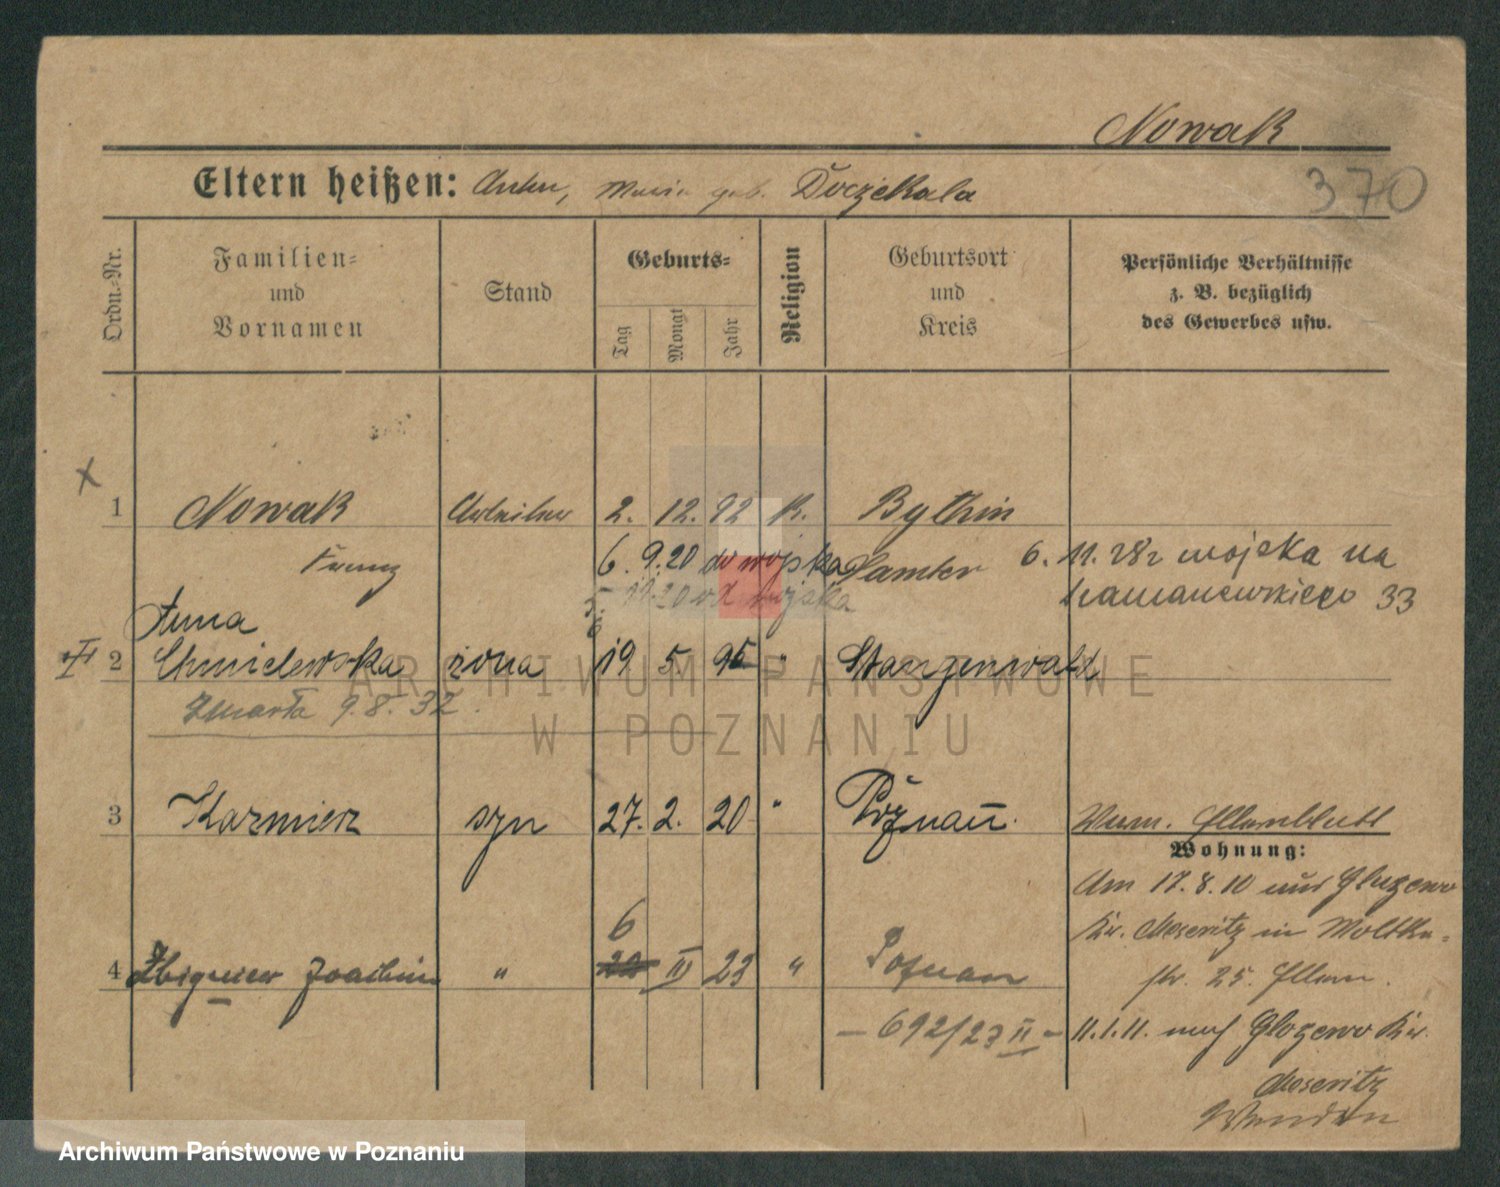 Nowak
370
Eltern heißen: Anton, Maria geb. Doczekala
Ordn.-Nr.
Familien- und Vornamen
Stand
Geburts-
Tag
Monat
Jahr
Religion
Geburtsort und Kreis
Persönliche Verhältnisse z. B. bezüglich des Gewerbes usw.
x
1 Nowak Arbeiter 2. 12. 92 K. Bythin
Franz
6. 9.20 do wojska Samter
6. 11. 28 z wojska na
11.20 od wojska
33
Anna
II 2 Chmielewska żona 19 5 95 " Stangenwald
Zmarła 9.8.32.
3 Kazmierz syn 27. 2. 20 " Poznań.
Wohnung:
Am 17.8.10 Glozewo
Kr. Meseritz in Moltke-
str. 25.
6
4 Zbigniew Joachim " III 23 " Poznan
- 692/23 II -
11.1.11. nach Glozewo Kr.
Meseritz
ARCHIWUM PAŃSTWOWE
W POZNANIU
Archiwum Państwowe w Poznaniu